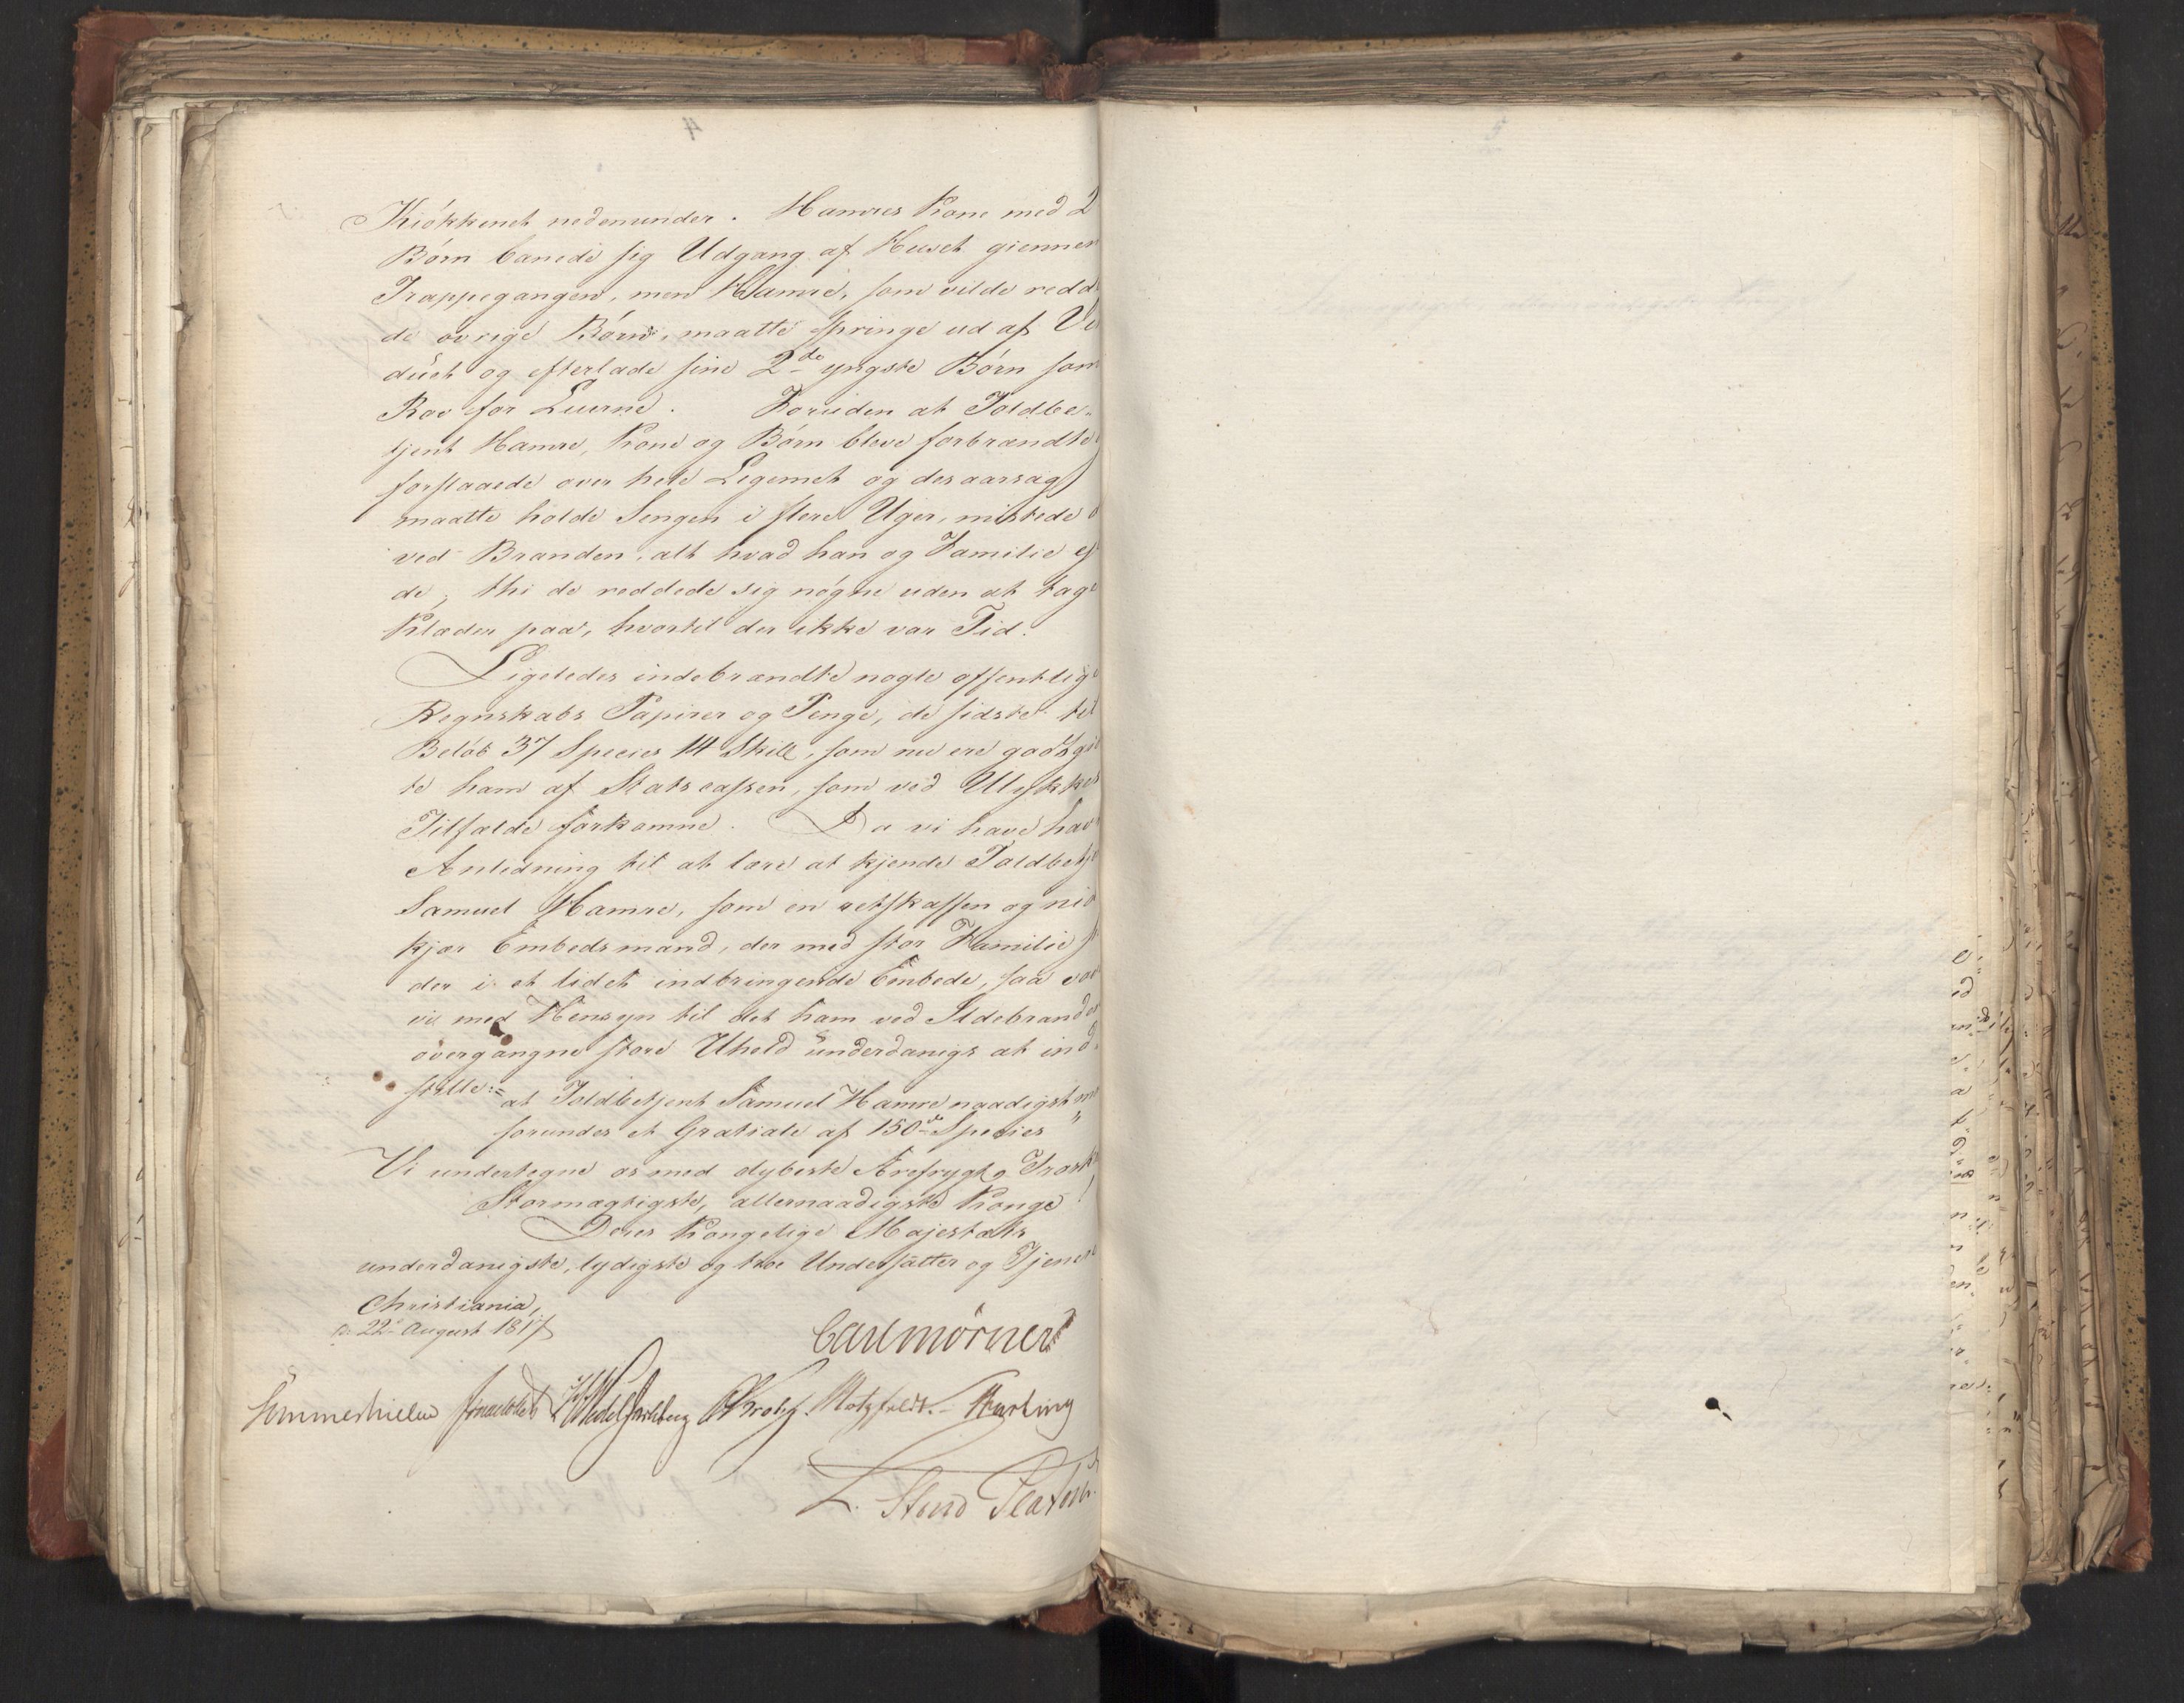 Kiökkenet nedenunder. Hamres Kone med 2
Börn banede sig Udgang af Huset giennem
Trappegangen, men Hamre, som vilde redde
de övrige Börn, maatte springe ud af Vin
düet og efterlade sine 2de yngste Börn som
Rov for Luerne. Foruden at Toldbe-
tjent Hamre, Kone og Börn bleve forbrændte
forslaaede over hele Legemet og desaarsag
maatte holde Sengen i flere Uger, mistede
ved Branden, alt hvad han og Familie ej
de, thi de reddede sig nøgne uden at tage
Klæder paa, hvortil der ikke var Tid.
Ligeledes indebrændte nogle offentlige
Regnskabs Papirer og Penge, de sidste til
Beløb 37 Species 14 Skill, som nu ere godtgi
te ham af Statscassen, som ved Ulykkes
Tilfælde forkomne. Da vi have hav
Anledning til at lære at kjende Toldbetje
Samuel Hamre, som en retskaffen og nid
kjær Embedsmand, der med stor Familie si
der i et lidet indbringende Embede, saa
vi med Hensyn til det ham ved Ildebranden
overgangne store Uheld underdanigst at ind
stille:=
at Toldbetjent Samuel Hamre naadigst
forundes et Gratiale af 150de Species "
Vi undertegne os med dybeste Ærefrygt,
Stormægtigste, allernaadigste Konge!
Deres Kongelige Majestæts
underdanigste, lydigste og troe Undersåtter og Tjenere
Christiania,
22de August 1817
Carl Mörner
Sommerhielm Wedel Jarlsberg Krohg. Motzfeldt. Hartmg
L. Stoud Platou